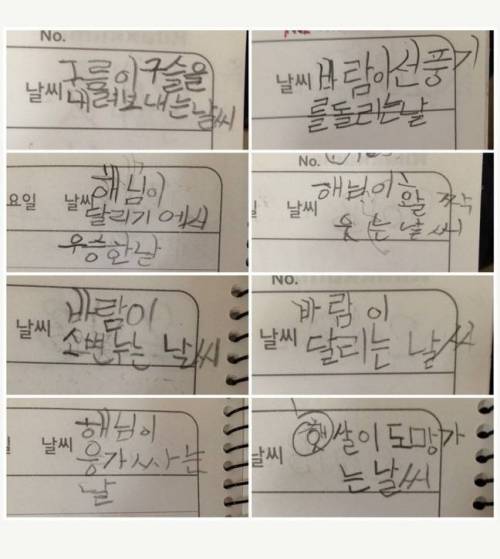 No.
날씨 구름이 구슬을
내려보내는 날씨
날씨 바람이 선풍기
를 돌리는 날
요일 날씨 햇님이
달리기에서
우승한 날
No.
날씨 해변이 활짝
웃는 날씨
날씨 바람이
소변누는 날씨
No.
날씨 바람이
달리는 날씨
날씨 햇님이
응가 싸는
날
날씨 햇살이 도망가
는 날씨